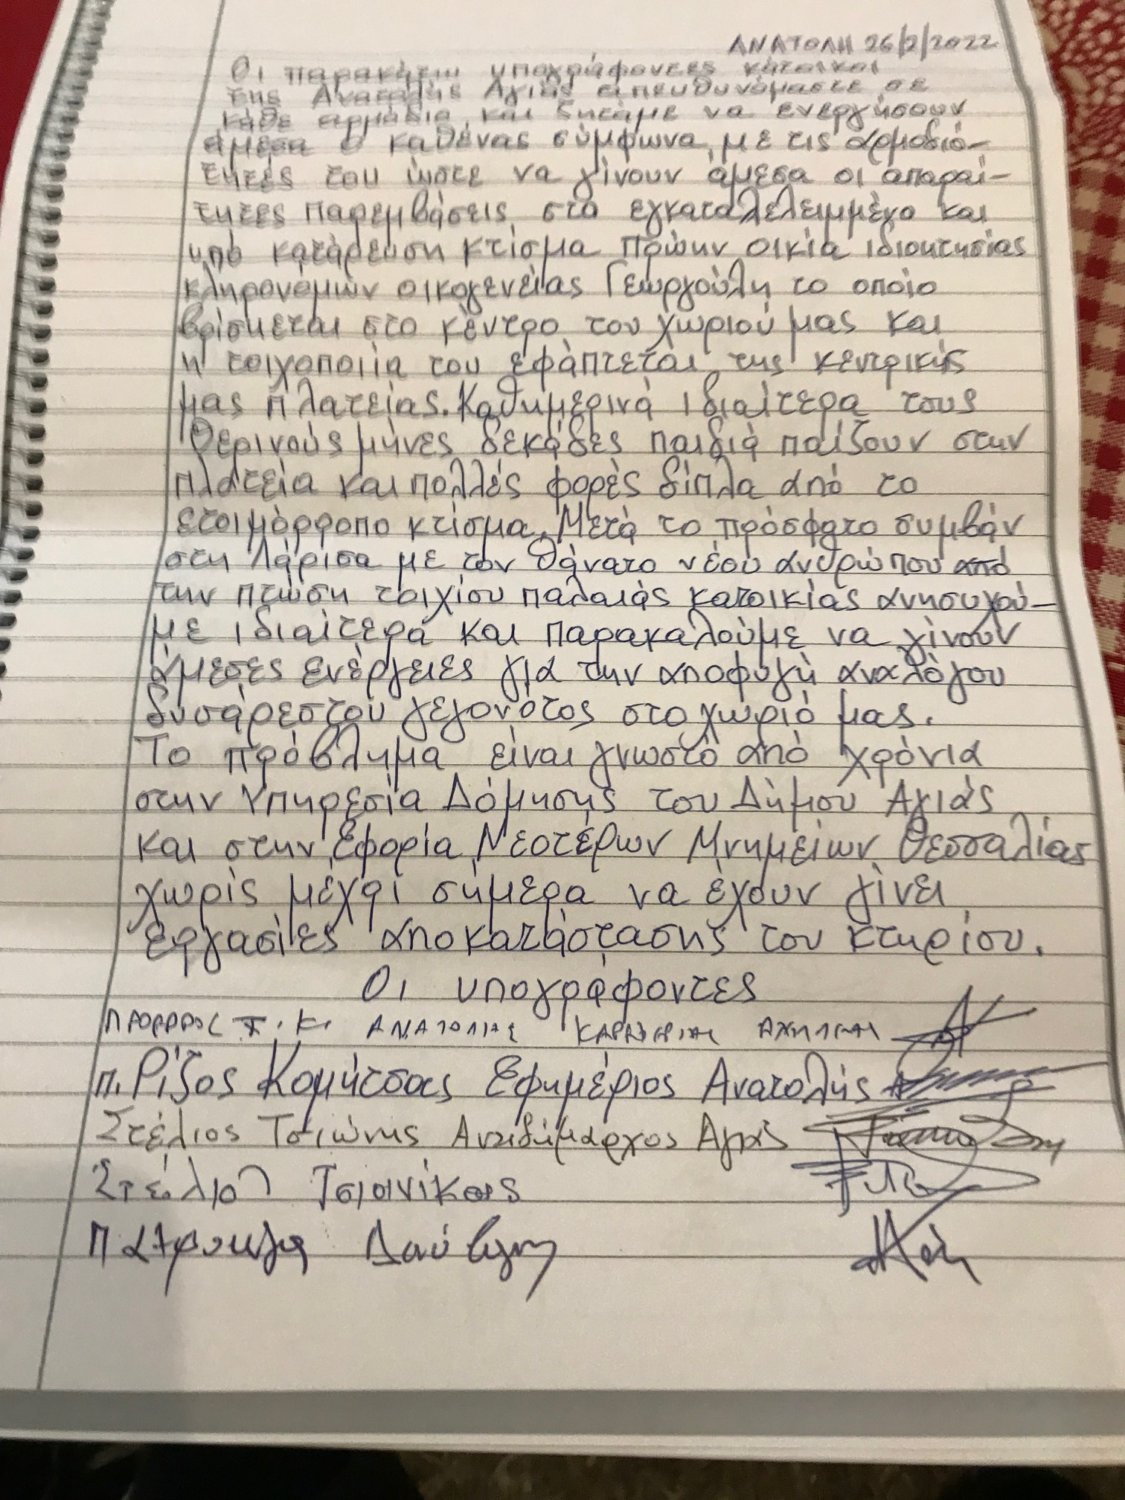 ΑΝΑΤΟΛΗ 26/2/2022
Οι παρακάτω υπογράφοντες κάτοικοι
της Ανατολής Αγιάς απευθυνόμαστε σε
κάθε αρμόδιο και ζητάμε να ενεργήσουν
άμεσα ο καθένας σύμφωνα με τις αρμοδιό-
τητές του ώστε να γίνουν άμεσα οι απαραί-
τητες παρεμβάσεις στο εγκαταλελειμμένο και
υπό κατάρευση κτίσμα πρώην οικία ιδιοκτησίας
κληρονομών οικογενείας Γεωργούλη το οποίο
βρίσκεται στο κέντρο του χωριού μας και
η τοιχοποιία του εφάπτεται της κεντρικής
μας πλατείας. Καθημερινά ιδιαίτερα τους
θερινούς μήνες δεκάδες παιδιά παίζουν στην
πλατεία και πολλές φορές δίπλα από το
ετοιμόρροπο κτίσμα. Μετά το πρόσφατο συμβάν
στη Λάρισα με τον θάνατο νέου ανθρώπου από
την πτώση τοιχίου παλαιάς κατοικίας ανησυχού-
με ιδιαίτερα και παρακαλούμε να γίνουν
άμεσες ενέργειες για την αποφυγή αναλόγου
δυσάρεστου γεγονότος στο χωριό μας.
Το πρόβλημα είναι γνωστό από χρόνια
στην Υπηρεσία Δόμησης του Δήμου Αγιάς
και στην Εφορία Νεοτέρων Μνημείων Θεσσαλίας
χωρίς μέχρι σήμερα να έχουν γίνει
εργασίες αποκατάστασης του κτηρίου.
Οι υπογράφοντες
ΠΡΟΕΔΡΟΣ Τ.Κ. ΑΝΑΤΟΛΗΣ
π. Ρίζος Κομήτσας Εφημέριος Ανατολής
Στέλιος Τσιώνης Αντιδήμαρχος Αγιάς
Στέλιος Τσιανίκας